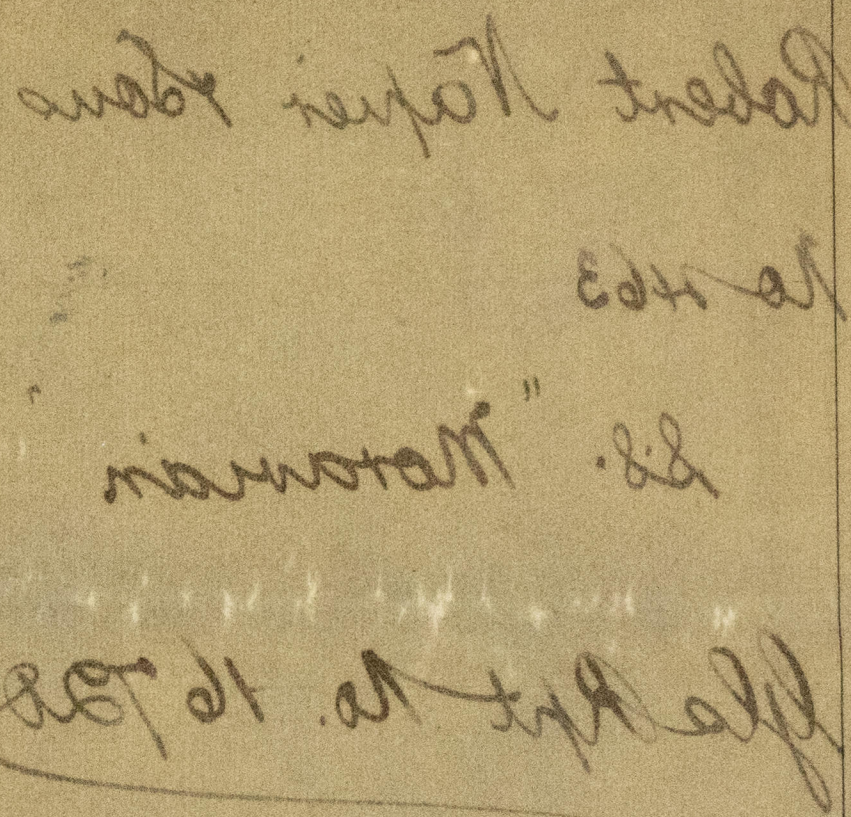 Robert Napier & Sons
No 463
S.S. "Moravian"
Gls Rpt No. 16728